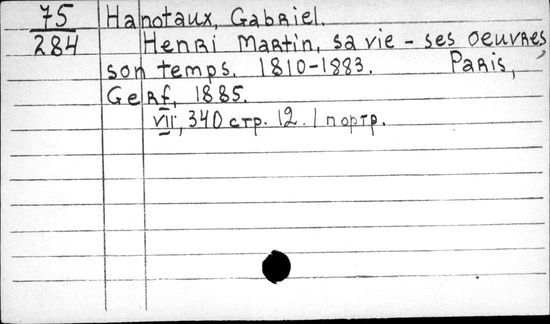 75 Hanotaux, Gabriel.
284 Henri Martin, sa vie - ses oeuvres,
son temps. 1810-1883. Paris,
Cerf, 1885.
VII, 340 стр. 12. 1 портр.